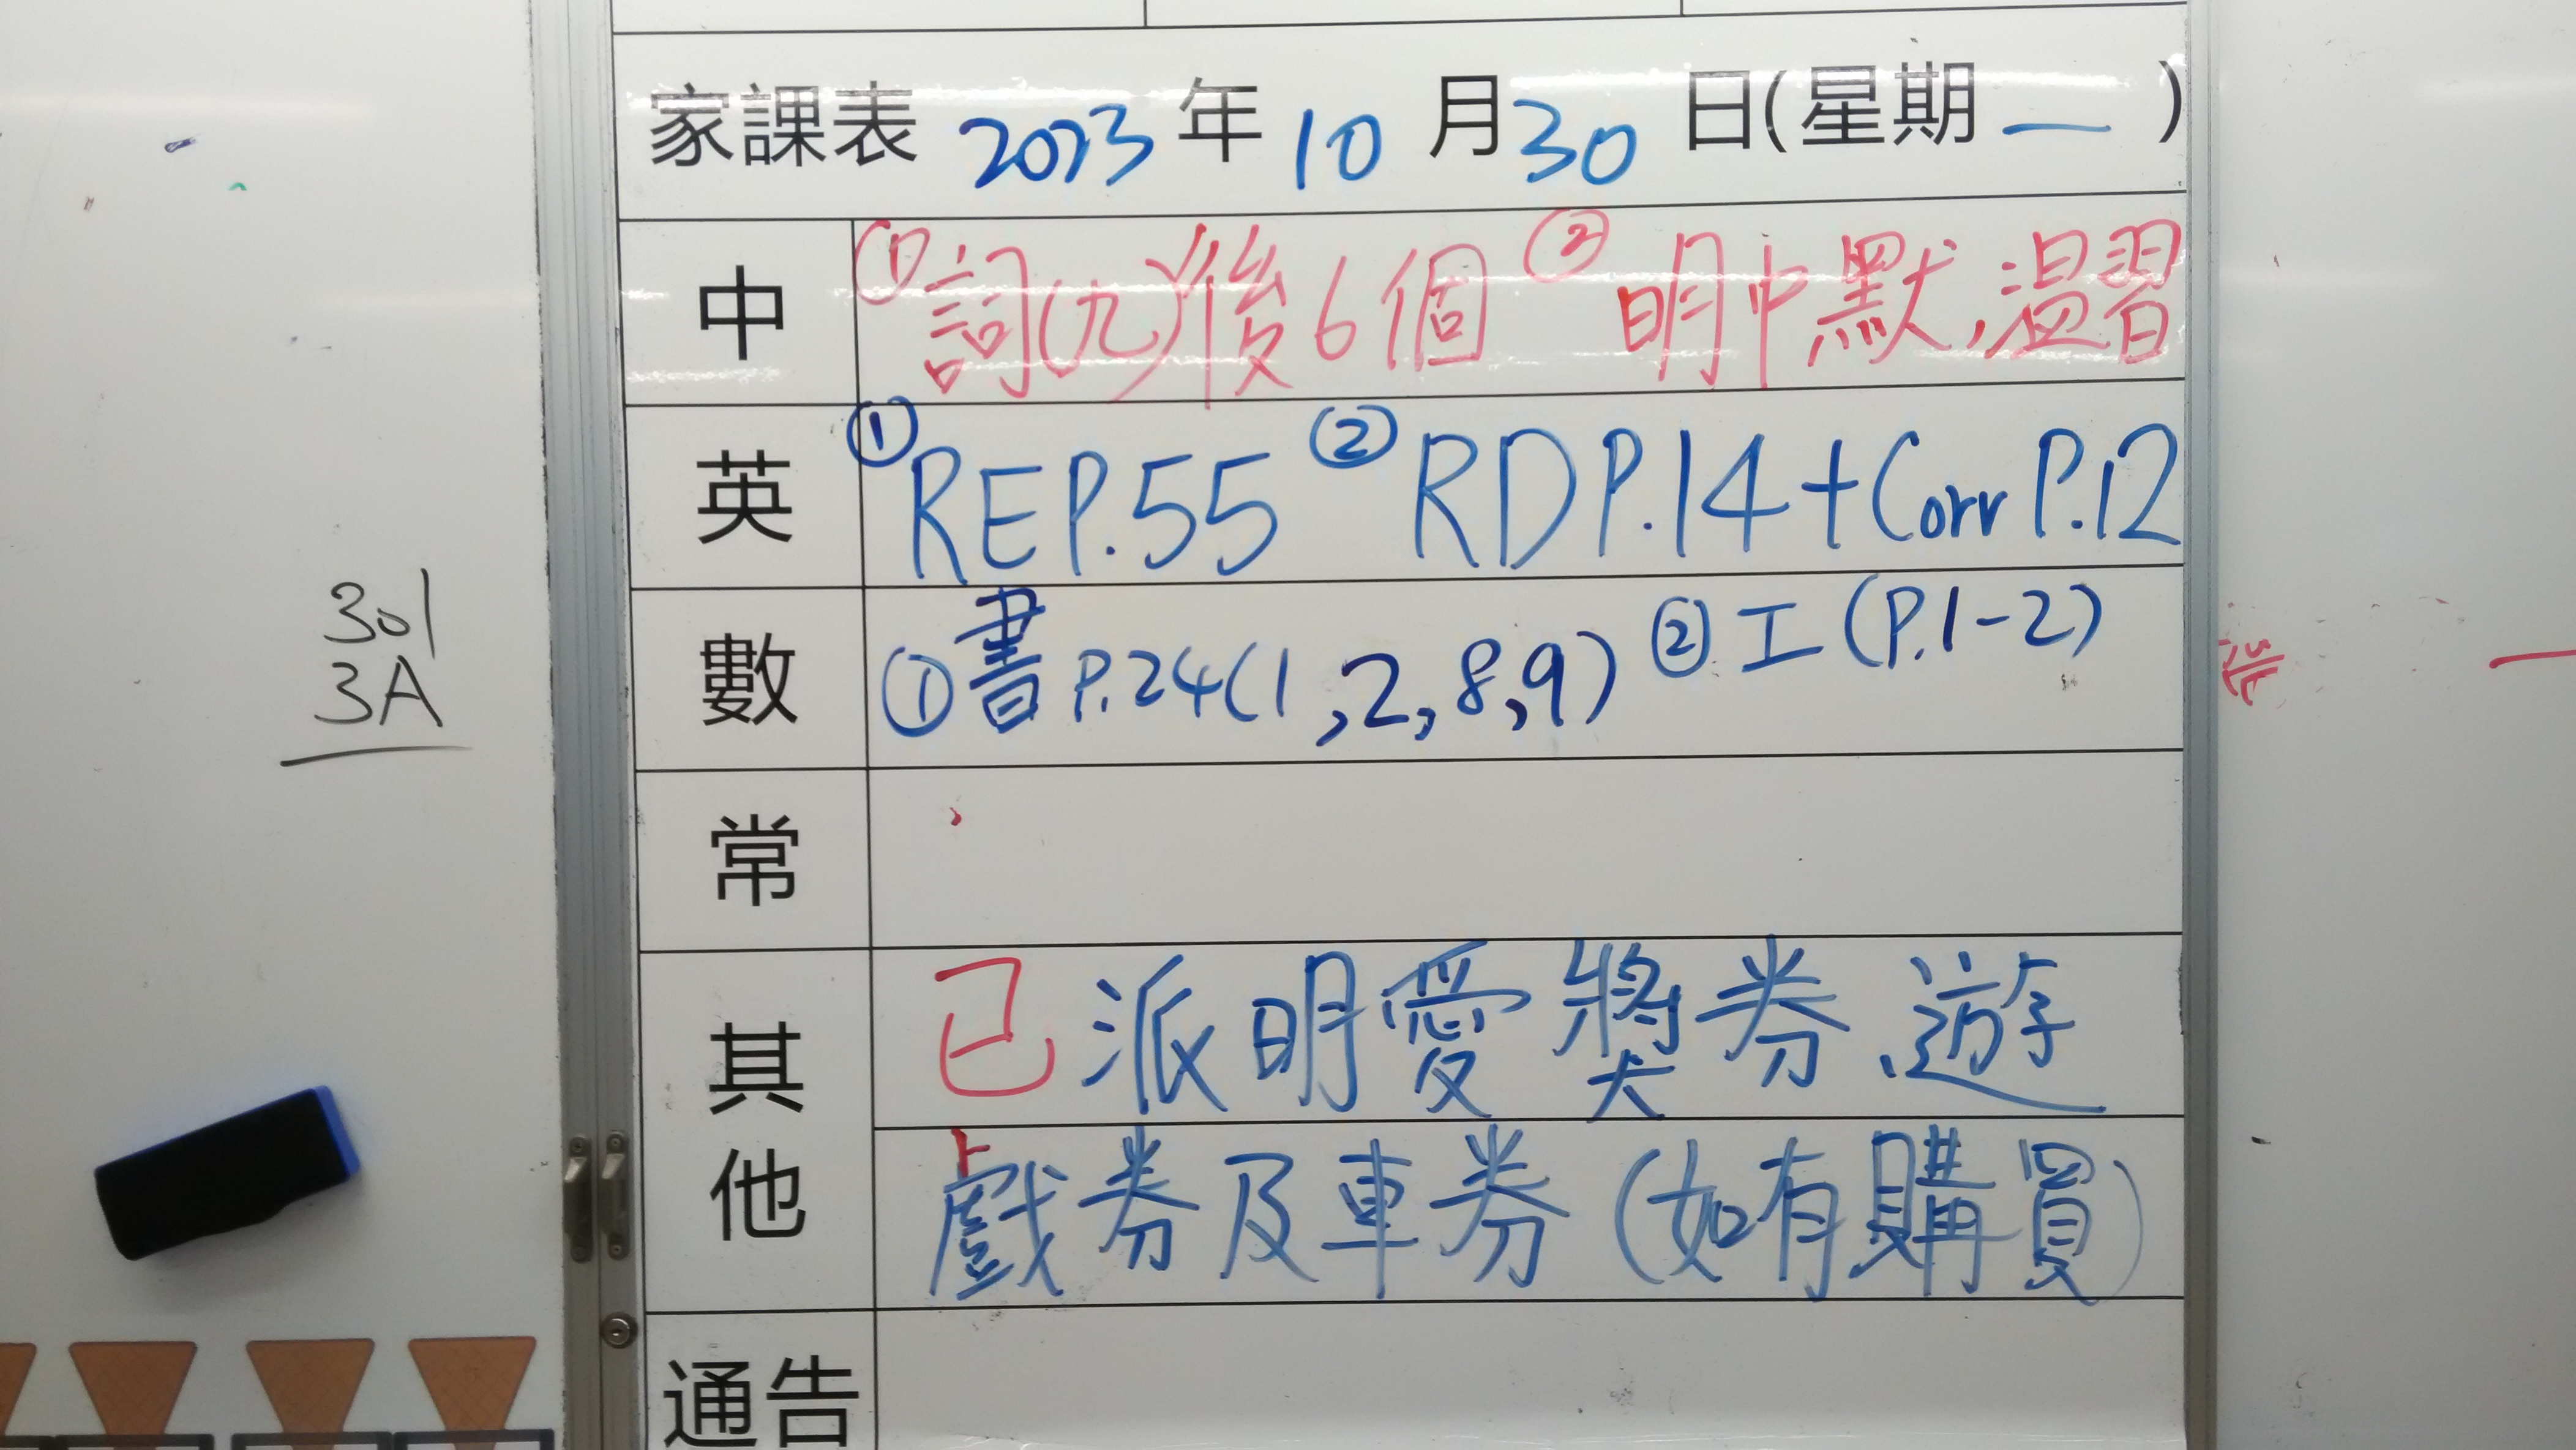 家課表 2023 年 10 月 30 日(星期 一 )
中 ① 詞(九)後6個 ② 明中默,溫習
英 ① RE P.55 ② RD P.14 + Corr P.12
數 ① 書 P.24(1,2,8,9) ② 工 (P.1-2)
常
其他 已派明愛獎券、遊
戲券及車券(如有購買)
通告
301
3A